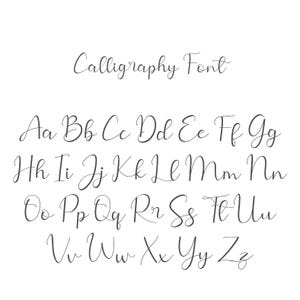 Calligraphy Font
Aa Bb Cc Dd Ee Ff Gg
Hh Ii Jj Kk Ll Mm Nn
Oo Pp Qq Rr Ss Tt Uu
Vv Ww Xx Yy Zz